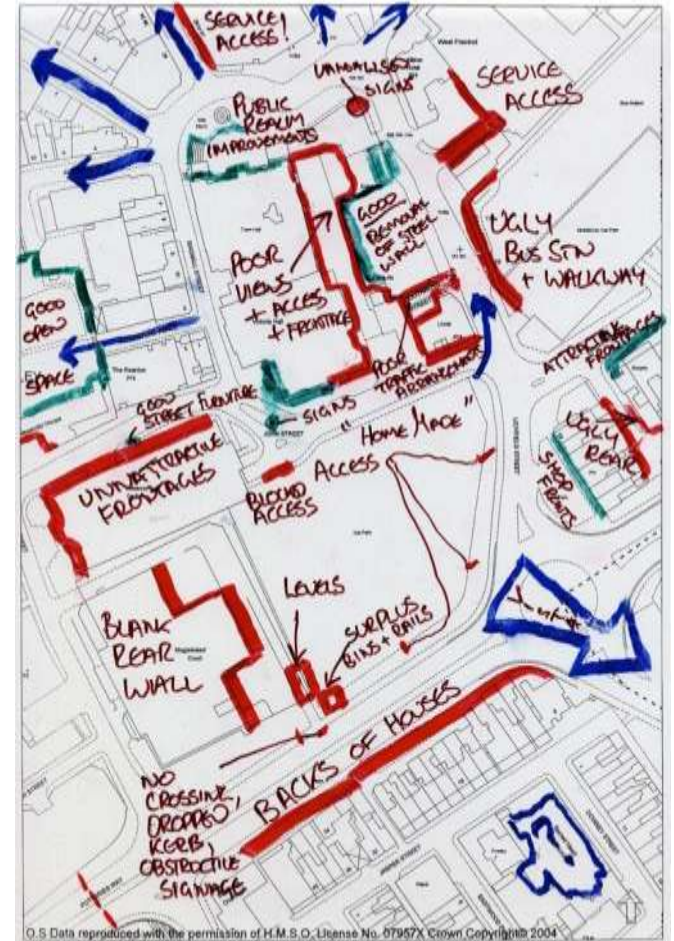 SERVICE
ACCESS!
VANDALISED
SIGNS
SERVICE
ACCESS
PUBLIC
REALM
IMPROVEMENTS
GOOD
REMOVAL
OF STEEL
WALL
UGLY
BUS STN
+ WALKWAY
POOR
VIEWS
+ ACCESS
+ FRONTAGE
Town Hall
GOOD
OPEN
SPACE
POOR
TRAFFIC
ARRANGEMENTS
ATTRACTIVE
FRONTAGES
GOOD
STREET FURNITURE
SIGNS
"HOME MADE"
ACCESS
UGLY
REAR
SHOP
FRONTS
UNNATTRACTIVE
FRONTAGES
BLOCKED
ACCESS
Car Park
LEVELS
SURPLUS
BINS + RAILS
BLANK
REAR
WALL
Magistrates'
Court
BACKS OF HOUSES
NO
CROSSING,
DROPPED
KERB,
OBSTRUCTIVE
SIGNAGE
O.S Data reproduced with the permission of H.M.S.O. License No. 07957X Crown Copyright© 2004